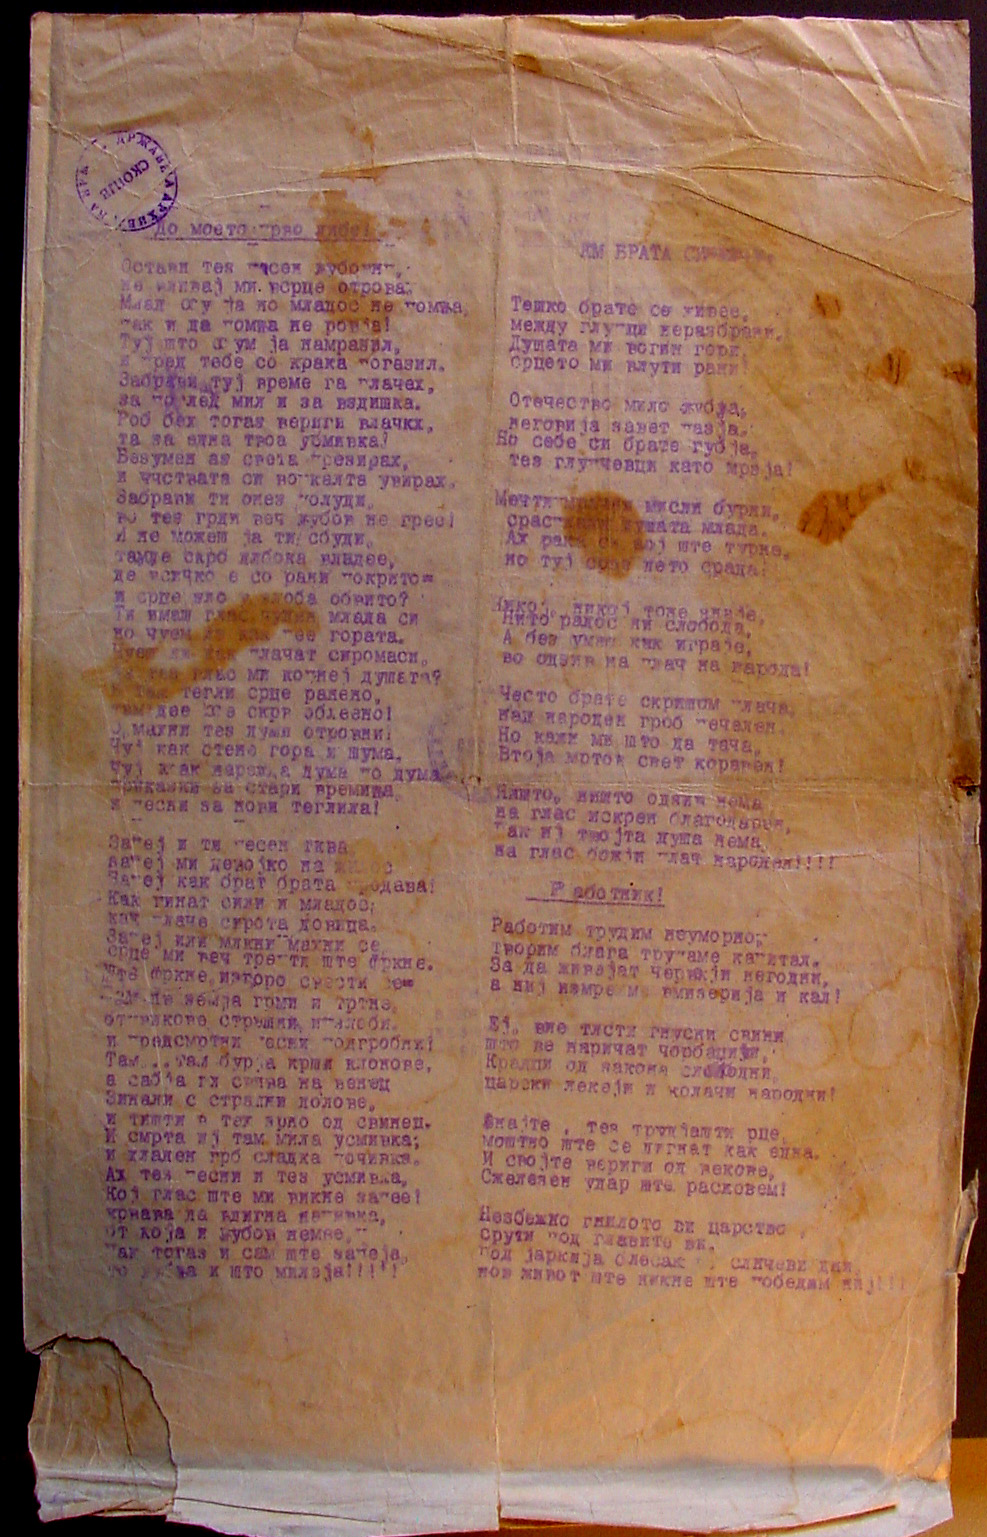 ДРЖАВНА АРХИВА НА НРМ
СКОПЈЕ
До моето прво либе!
Остави теа песен љубовна,
не вливај ми во срце отрова.
Млад сегу ја но младос не помња,
пак и да помња не ровја!
Туј што сгум ја намразил,
и пред тебе со крака погазил.
Забрави туј време га плачех,
за поглед мил и за вздишка.
Роб бех тогаз вериги влачкх,
та за една твоа усмивка!
Безумен аз света презирах,
и чуствата си во калта увирах.
Забрави ти онез полуди,
во тез грди веч љубов не грее!
И не можеш ја ти сбуди,
тамде скрб длбока владее,
де всичко е со рани покрито
и срце зло и злоба обвито?
Ти имаш глас чуден млада си
но чуеш ли как пее гората.
Чуеш ли как плачат сиромаси,
глас ми копнеј душата?
тегли срце ранено,
скрб облеено!
О, махни тез думи отровни!
Чуј как стене гора и шума.
Чуј как нарежда дума по дума
приказки за стари времиња
и песни за нови теглила!
Запеј и ти песен тква
запеј ми девојко на
Запеј как брат брата продава!
Как гинат сили и младос,
как плаче сирота довица.
Запеј или млкни махни се
срце ми веч трепти ште фркне.
Ште фркне, изгоро свести се
Там де земја грми и тртне,
от викове страшни, и злоби.
и предсмртни песни подгробни!
Там...там бурја крши клонове,
а сабја ги свива на венец
Зинали с страшни долове,
и пишти в тех зрно од свинец.
И смрта иј там мила усмивка;
и хладен грб сладка почивка.
Ах тез песни и тез усмивка,
Кој глас ште ми викне запее!
крвава да вдигна напивка,
от која и љубов немее,
Пак тогаз и сам ште запеја,
што љубја и што милеја!!!!!
КМ БРАТА СИ
Тешко брате се живее,
между глупци неразбрани,
Душата ми вогин гори
Срцето ми влути рани!
Отечество мило љубја,
неговија завет пазја.
Но себе си брате губја,
тез глупчевци като мразја!
Мечти мрачни мисли бурни,
душата млада.
Ах рака си кој ште турне,
но туј срце дето срада!
Никој, никој тоне знаје,
Нито радос ни слобода,
А без умни кик играје,
во одзив на плач на народа!
Често брате скришом плача,
Над народен гроб печален.
Но кажи ми што да тача,
Втоја мртов свет коравен!
Ништо, ништо одзив нема
на глас искрен благодарен,
Пак иј твојта душа нема,
на глас божји плач народен!!!!
Работник!
Работим трудим неуморно,
Творим блага трупаме капитал.
За да живејат червкји негодни,
а ниј измреме вмизерија и кал!
Еј, вие тлсти гнусни свини
што ве наричат чорбаџии,
Крадци од закона слободни,
царски лекеји и колачи народни!
Знајте, тез трудјашти рце,
моштно ште се дигнат как една.
И својте вериги од векове,
Сжелезен удар ште расковем!
Незбежно гнилото ви царство
срути под главите ви,
Под јаркија блесак слнчеви дни,
нов живот ште никне ште победим ниј!!!